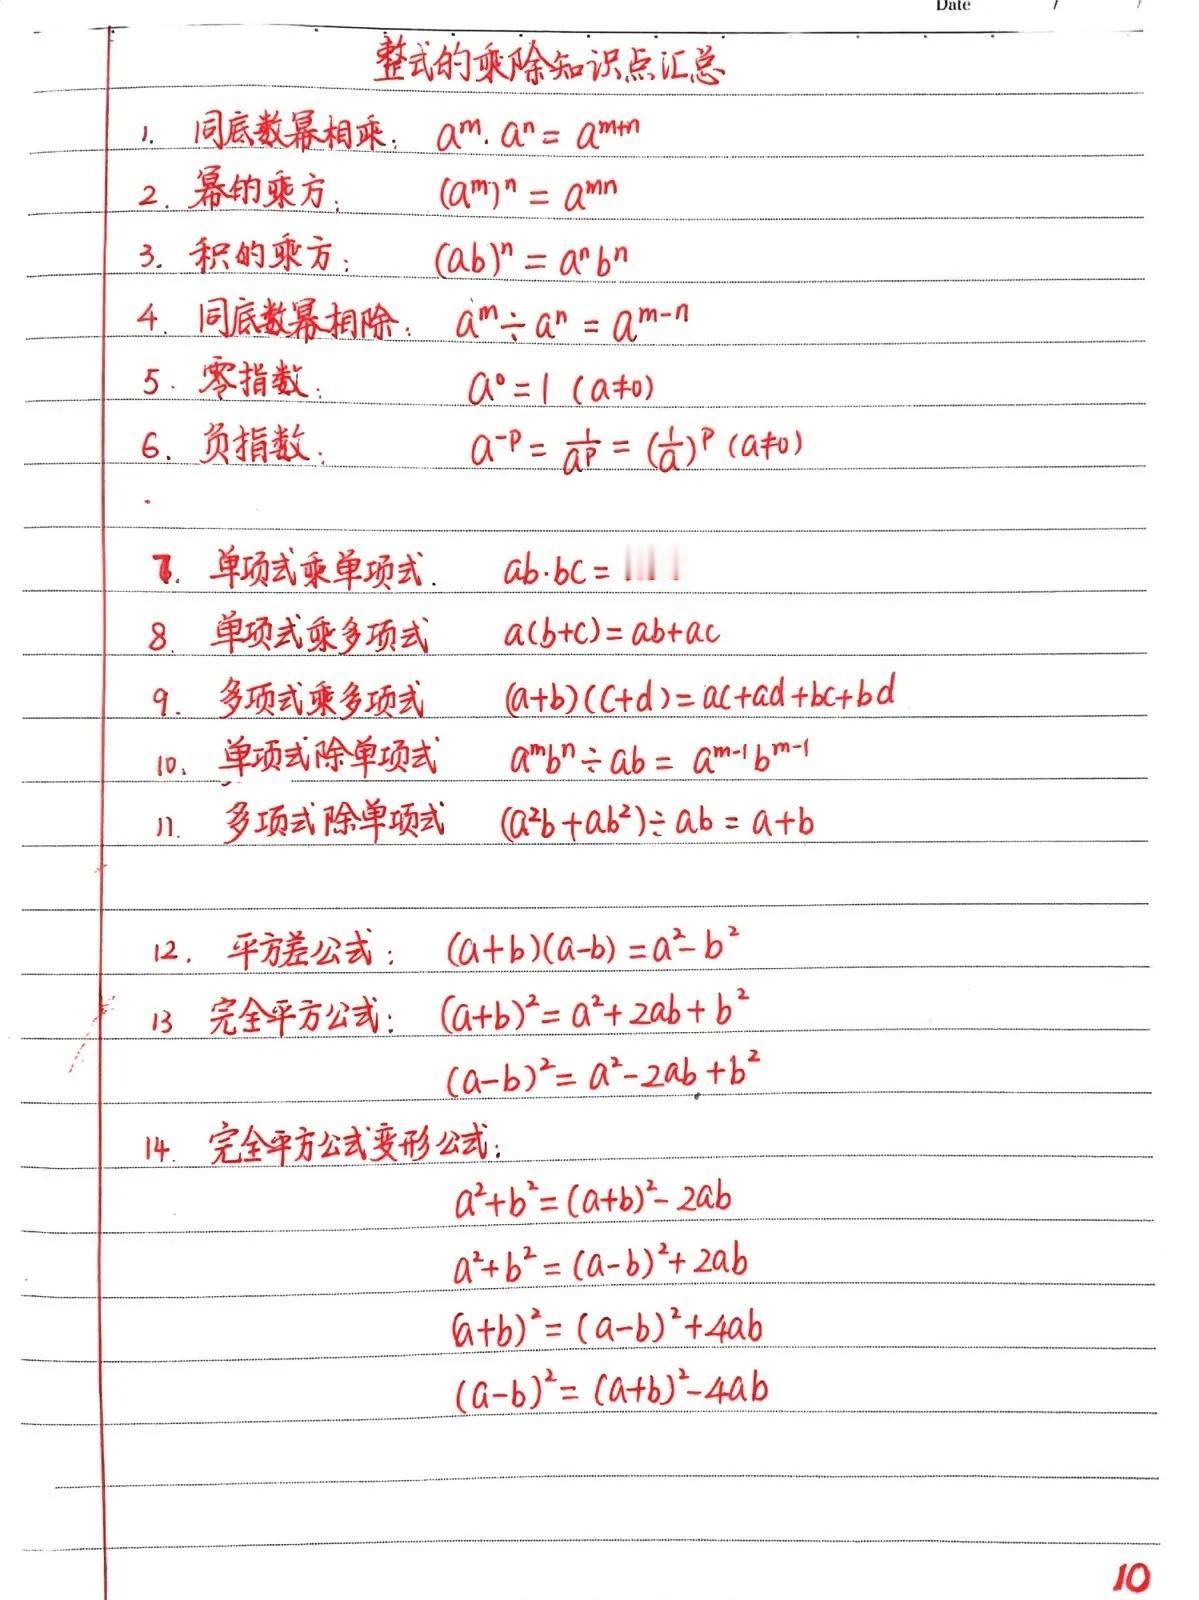 Date / /
整式的乘除知识点汇总
1. 同底数幂相乘: aᵐ·aⁿ=aᵐ⁺ⁿ
2. 幂的乘方: (aᵐ)ⁿ=aᵐⁿ
3. 积的乘方: (ab)ⁿ=aⁿbⁿ
4. 同底数幂相除: aᵐ÷aⁿ=aᵐ⁻ⁿ
5. 零指数: a⁰=1 (a≠0)
6. 负指数: a⁻ᵖ=1/aᵖ=(1/a)ᵖ (a≠0)
7. 单项式乘单项式. ab·bc=
8. 单项式乘多项式 a(b+c)=ab+ac
9. 多项式乘多项式 (a+b)(c+d)=ac+ad+bc+bd
10. 单项式除单项式 aᵐbⁿ÷ab=aᵐ⁻¹bᵐ⁻¹
11. 多项式除单项式 (a²b+ab²)÷ab=a+b
12. 平方差公式: (a+b)(a-b)=a²-b²
13 完全平方公式: (a+b)²=a²+2ab+b²
(a-b)²=a²-2ab+b²
14. 完全平方公式变形公式:
a²+b²=(a+b)²-2ab
a²+b²=(a-b)²+2ab
(a+b)²=(a-b)²+4ab
(a-b)²=(a+b)²-4ab
10